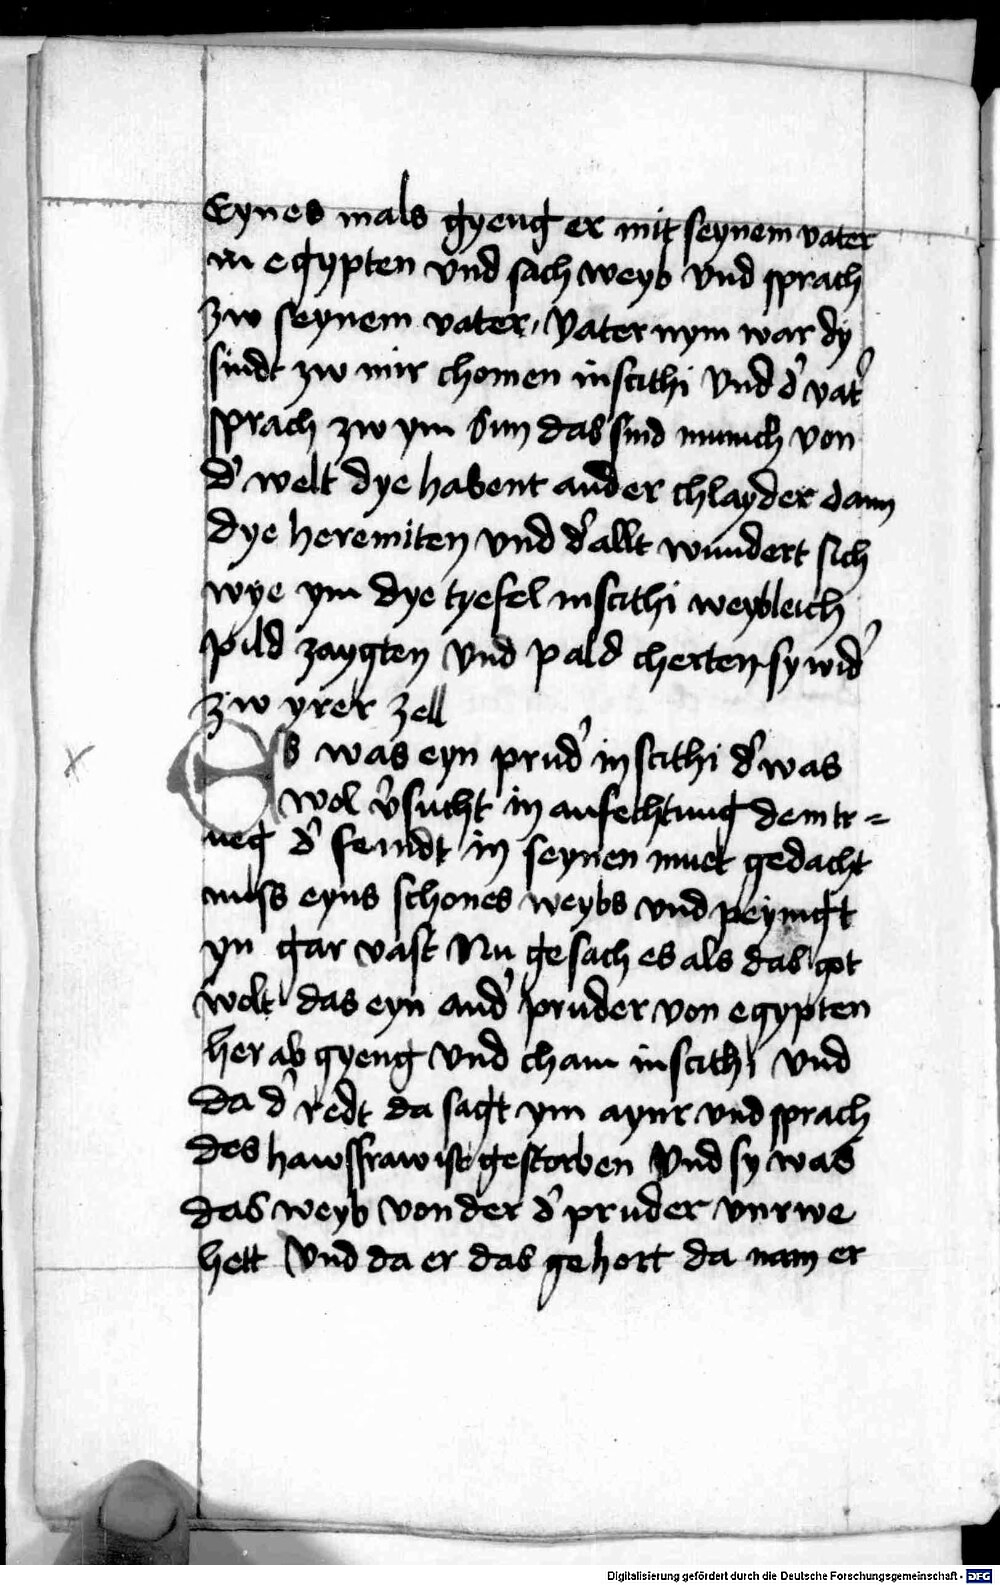 Eynes mals gyeng er mit seynem vater
in egypten vnd sach weyb vnd sprach
zw seynem vater, Vater nym war dy
sindt zw mir chomen in scithi Vnd d' vat'
sprach zw ym Sun das sind munich von
d' welt dye habent ander chlayder dann
dye heremiten vnd d' allt wundert sich
wye ym dye tyefel in scithi weybleich
pild zaygten Vnd pald cherten sy wid'
zw yrer zell
Es was eyn prud' in scithi d' was
wol v'sucht in anfechtung dem tr=
ueg d' feindt in seynen muet gedacht
nuss eyns schones weybs vnd peynigt
yn gar vast Nu gesach es als das got
wolt das eyn and' pruder von egypten
her ab gyeng vnd cham in scithi vnd
da d' redt da sagt ym aynr vnd sprach
des hawsfraw ist gestorben Vnd sy was
das weyb von der d' pruder vnrwe
hett Vnd da er das gehort da nam er
Digitalisierung gefördert durch die Deutsche Forschungsgemeinschaft - DFG